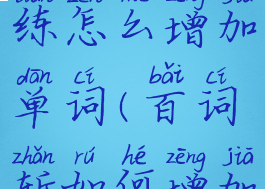 练怎么增加
dān cí bǎi cí
单词(百词
zhǎn rú hé zēng jiā
斩如何增加